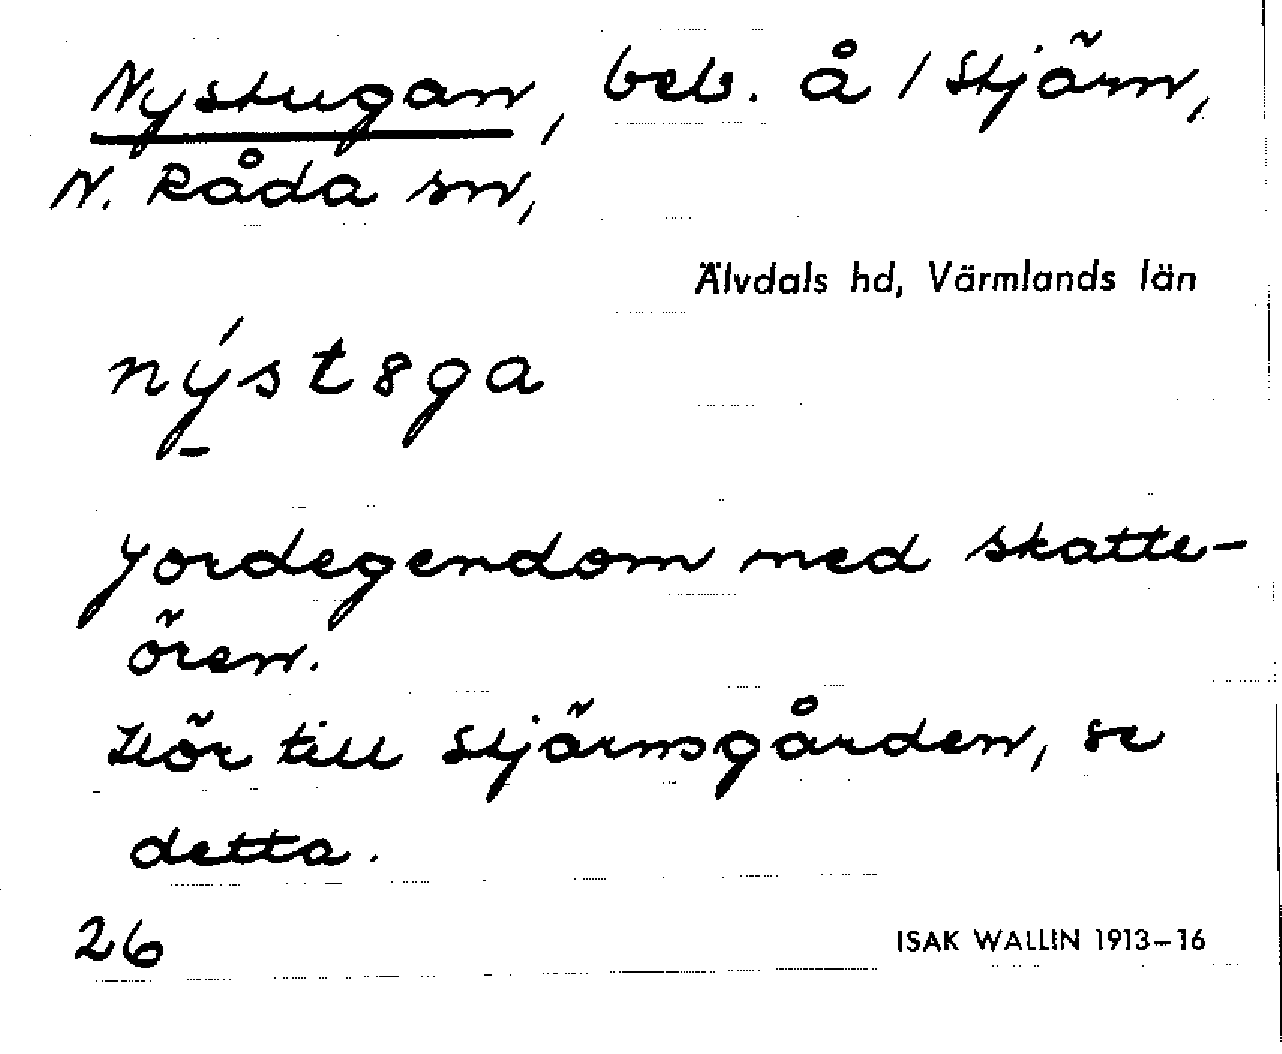 Nystugan, beb. å 1 Stjärn,
N. Råda sn,
Älvdals hd, Värmlands län
nýst8ga
Jordegendom med skatte-
ören.
Hör till Stjärnsgården, se
detta.
26
ISAK WALLIN 1913-16